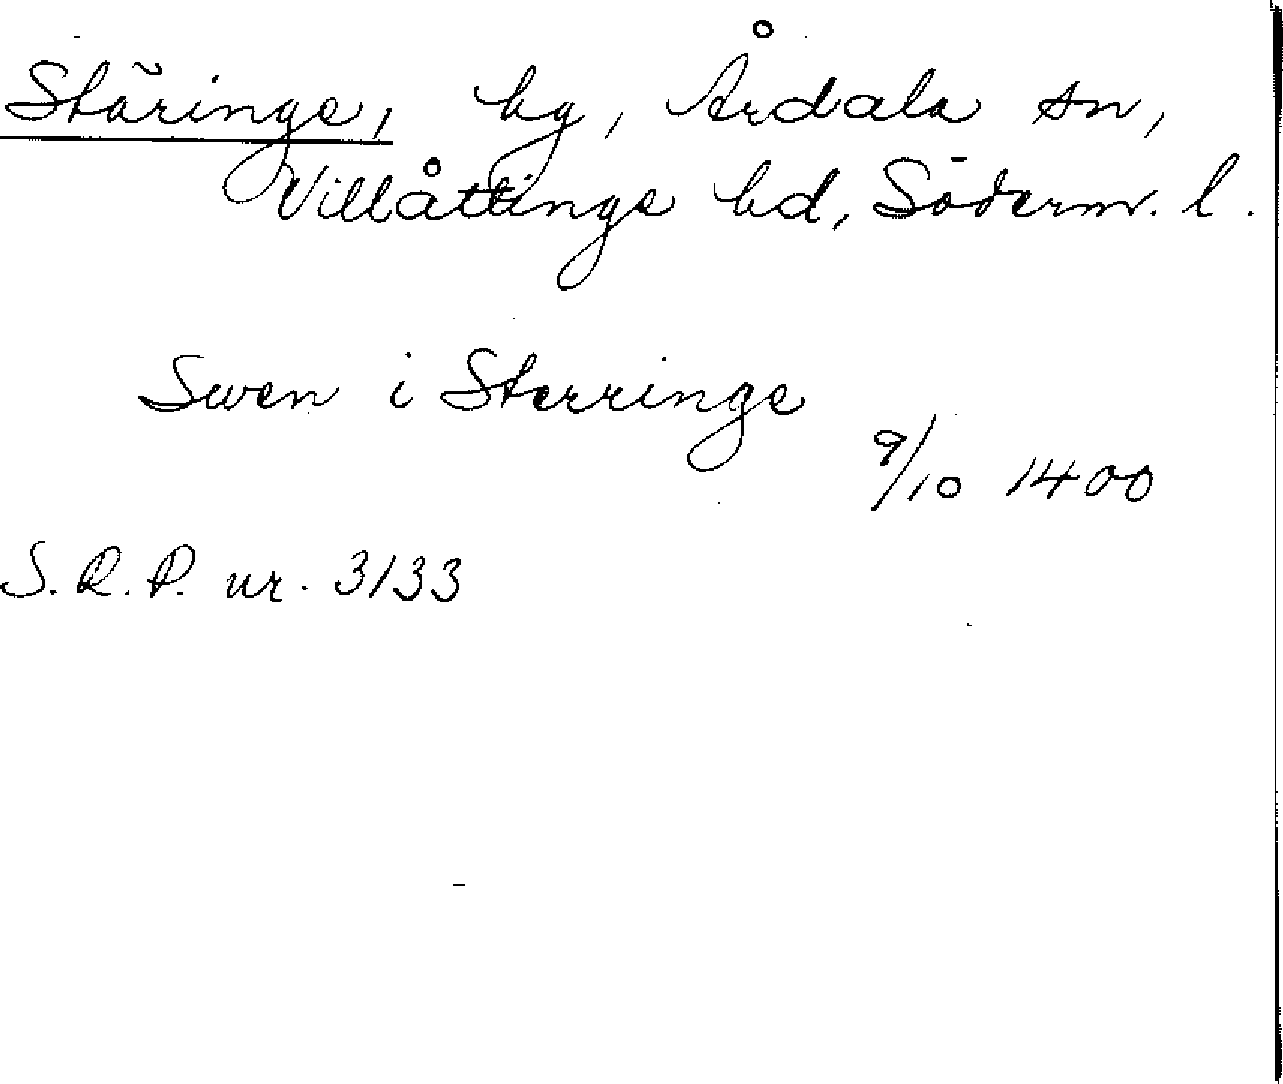 Stäringe, hg, Årdala sn,
Villåttinge hd, Söderm. l.
Swen i Sterringe
9/10 1400
S.R.P. nr. 3133